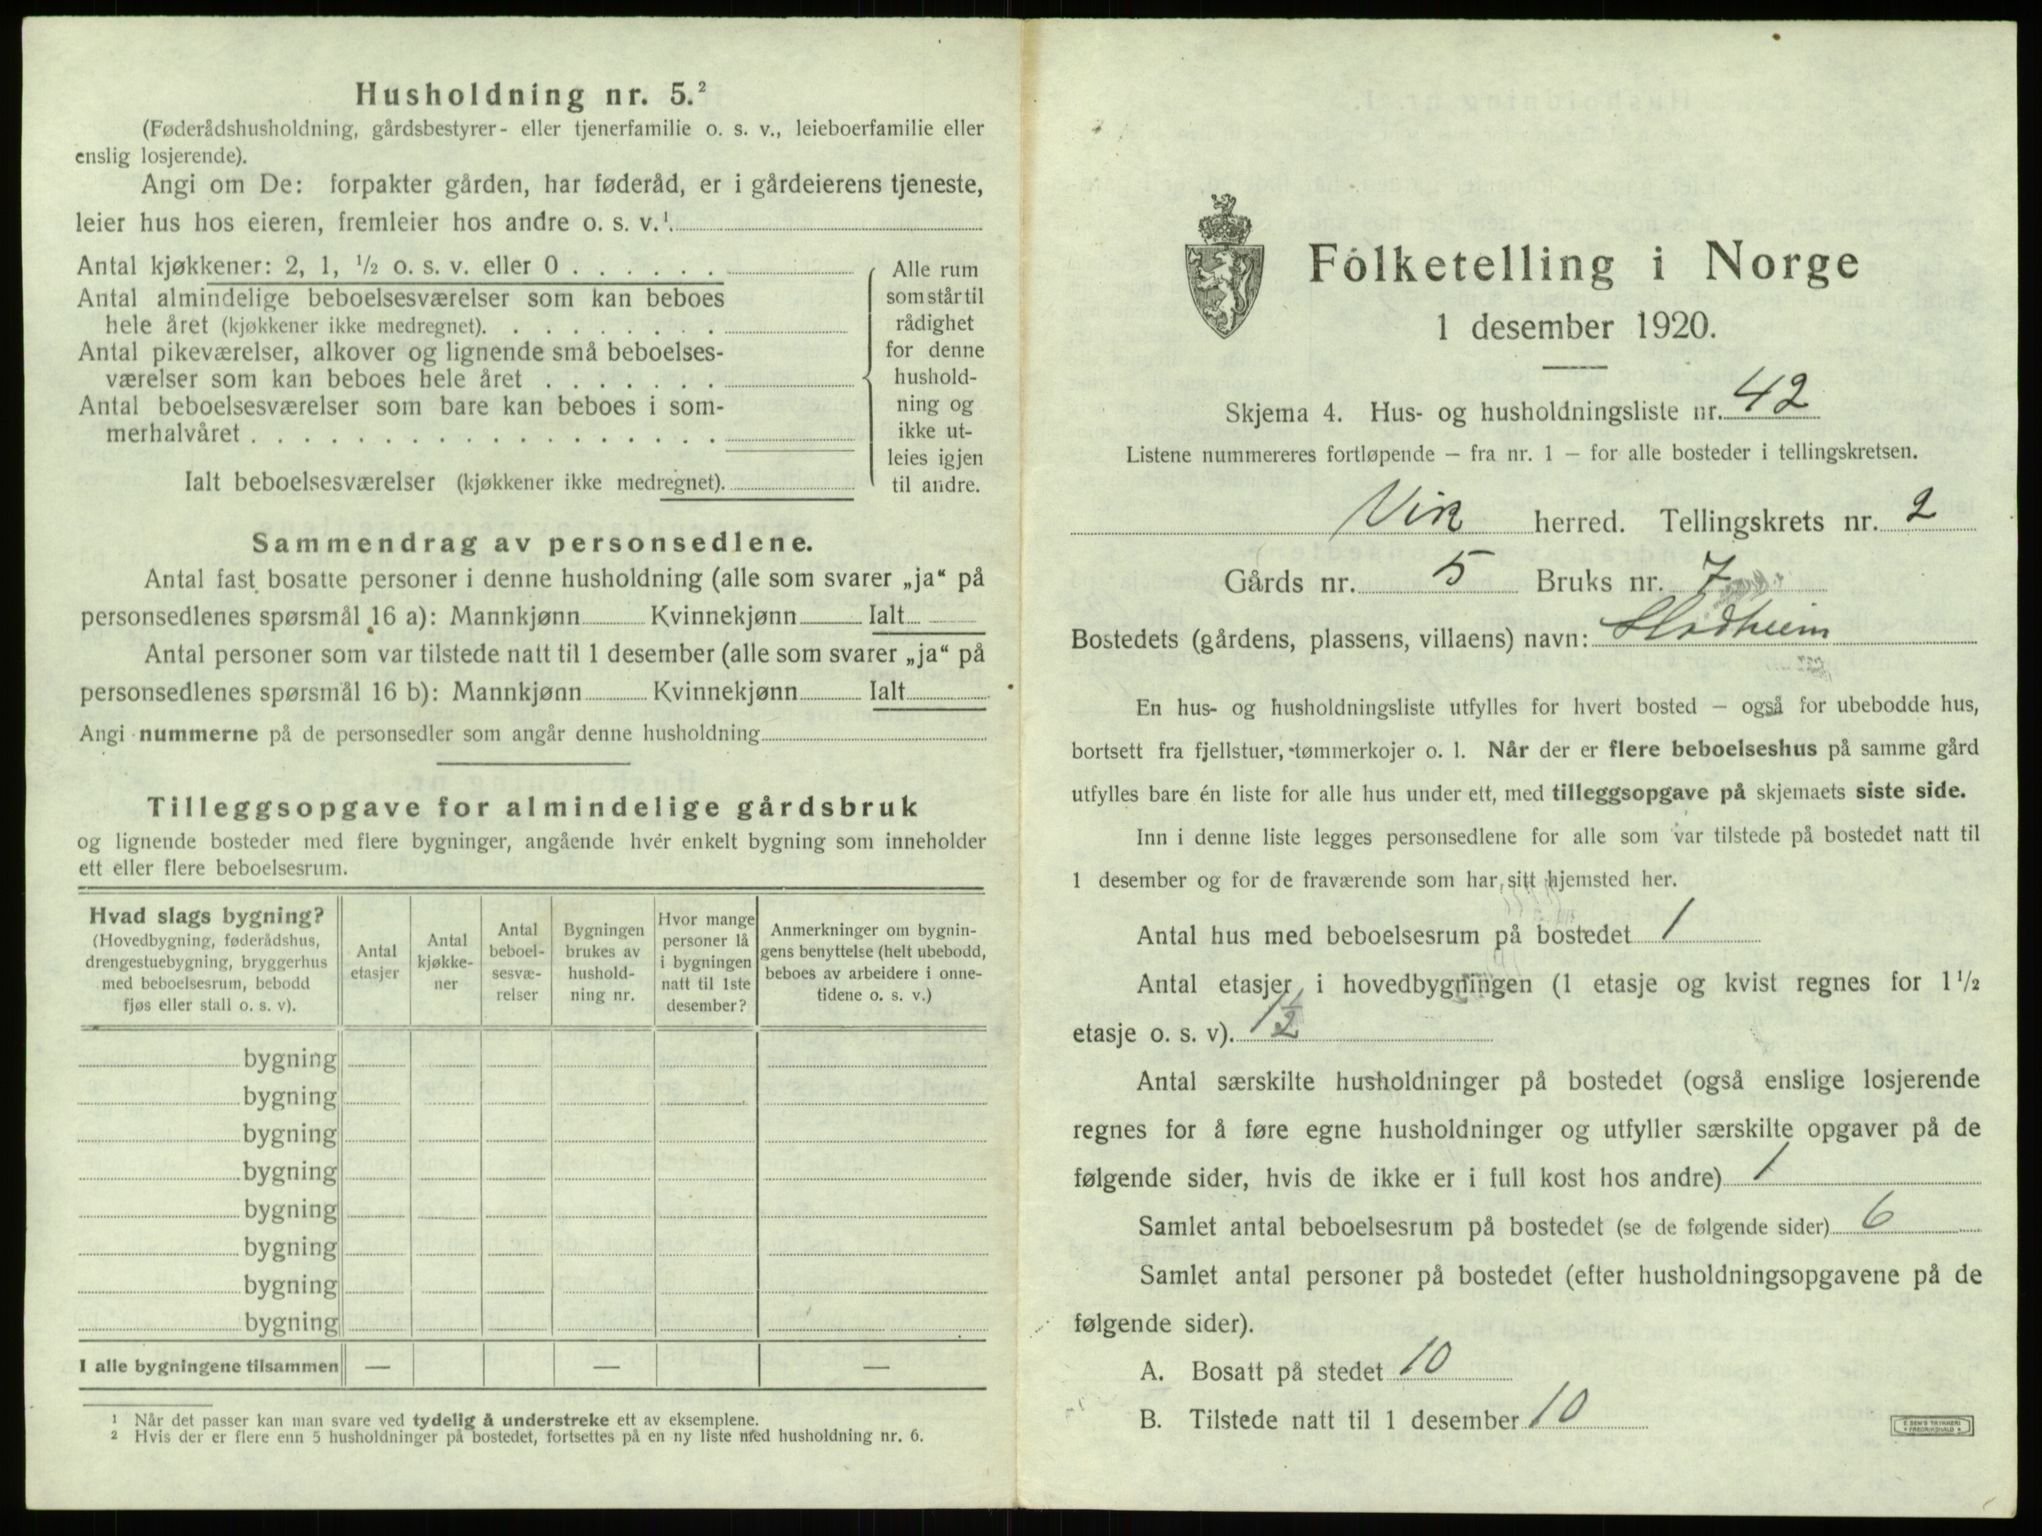 Husholdning nr. 5.²
(Føderådshusholdning, gårdsbestyrer- eller tjenerfamilie o. s. v., leieboerfamilie eller
enslig losjerende).
Angi om De: forpakter gården, har føderåd, er i gårdeierens tjeneste,
leier hus hos eieren, fremleier hos andre o. s. v.¹.
Antal kjøkkener: 2, 1, ½ o. s. v. eller 0 . . . . . .
Antal almindelige beboelsesværelser som kan beboes
hele året (kjøkkener ikke medregnet). . . . . . . . .
Antal pikeværelser, alkover og lignende små beboelses-
værelser som kan beboes hele året . . . . . . .
Antal beboelsesværelser som bare kan beboes i som-
merhalvåret . . . . . . . . . . . . . . . . . . .
Ialt beboelsesværelser (kjøkkener ikke medregnet).
Alle rum
som står til
rådighet
for denne
hushold-
ning og
ikke ut-
leies igjen
til andre.
Sammendrag av personsedlene.
Antal fast bosatte personer i denne husholdning (alle som svarer „ja“ på
personsedlenes spørsmål 16 a): Mannkjønn Kvinnekjønn Ialt
Antal personer som var tilstede natt til 1 desember (alle som svarer „ja“ på
personsedlenes spørsmål 16 b): Mannkjønn Kvinnekjønn Ialt
Angi nummerne på de personsedler som angår denne husholdning
Tilleggsopgave for almindelige gårdsbruk
og lignende bosteder med flere bygninger, angående hvér enkelt bygning som inneholder
ett eller flere beboelsesrum.
Hvad slags bygning?
(Hovedbygning, føderådshus,
drengestuebygning, bryggerhus
med beboelsesrum, bebodd
fjøs eller stall o. s. v).
Antal
etasjer
Antal
kjøkke-
ner
Antal
beboel-
sesvæ-
relser
Bygningen
brukes av
hushold-
ning nr.
Hvor mange
personer lå
i bygningen
natt til 1ste
desember?
Anmerkninger om bygnin-
gens benyttelse (helt ubebodd,
beboes av arbeidere i onne-
tidene o. s. v.)
bygning
bygning
bygning
bygning
bygning
bygning
bygning
bygning
I alle bygningene tilsammen — — —
¹ Når det passer kan man svare ved tydelig å understreke ett av eksemplene.
² Hvis der er flere enn 5 husholdninger på bostedet, fortsettes på en ny liste med husholdning nr. 6.
Folketelling i Norge
1 desember 1920.
Skjema 4. Hus- og husholdningsliste nr. 42
Listene nummereres fortløpende — fra nr. 1 — for alle bosteder i tellingskretsen.
Vik herred. Tellingskrets nr. 2
Gårds nr. 5 Bruks nr. 7
Bostedets (gårdens, plassens, villaens) navn:
En hus- og husholdningsliste utfylles for hvert bosted — også for ubebodde hus,
bortsett fra fjellstuer, tømmerkojer o. l. Når der er flere beboelseshus på samme gård
utfylles bare én liste for alle hus under ett, med tilleggsopgave på skjemaets siste side.
Inn i denne liste legges personsedlene for alle som var tilstede på bostedet natt til
1 desember og for de fraværende som har sitt hjemsted her.
Antal hus med beboelsesrum på bostedet 1
Antal etasjer i hovedbygningen (1 etasje og kvist regnes for 1½
etasje o. s. v). 1½
Antal særskilte husholdninger på bostedet (også enslige losjerende
regnes for å føre egne husholdninger og utfyller særskilte opgaver på de
følgende sider, hvis de ikke er i full kost hos andre) 1
Samlet antal beboelsesrum på bostedet (se de følgende sider) 6
Samlet antal personer på bostedet (efter husholdningsopgavene på de
følgende sider).
A. Bosatt på stedet 10
B. Tilstede natt til 1 desember 10